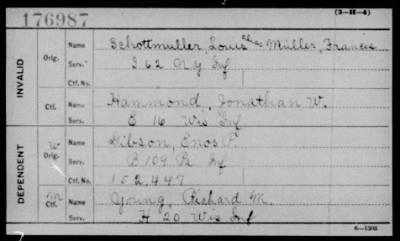 176987
(3—11—4)
INVALID
Orig.
Name
Schottmuller, Louis alias Müller, Francis
Serv.
I 62 N.Y. Inf
Ctf. No.
Ctf.
Name
Hammond, Jonathan W.
Serv.
E 16 Wis Inf
DEPENDENT
W
Orig.
Name
Gibson, Enos P.
Serv.
B 109 Pa Inf
Ctf. No.
152,447
M
Ctf.
Name
Young, Richard M.
Serv.
H 20 Wis Inf